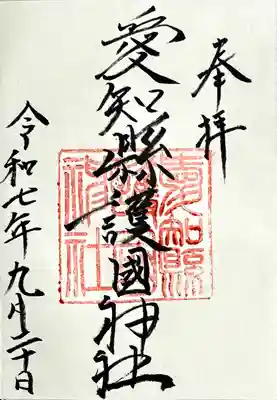 奉拝
愛知縣護國神社
令和七年九月二十日
愛知縣
神社